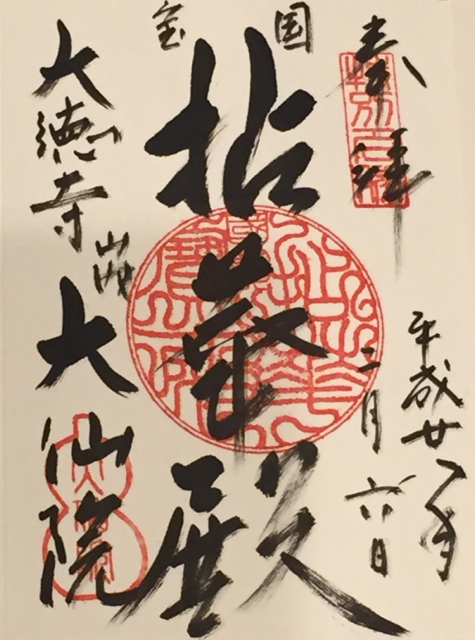 奉拝
平成廿八年
二月六日
国宝
拈華殿
大徳寺山内
大仙院